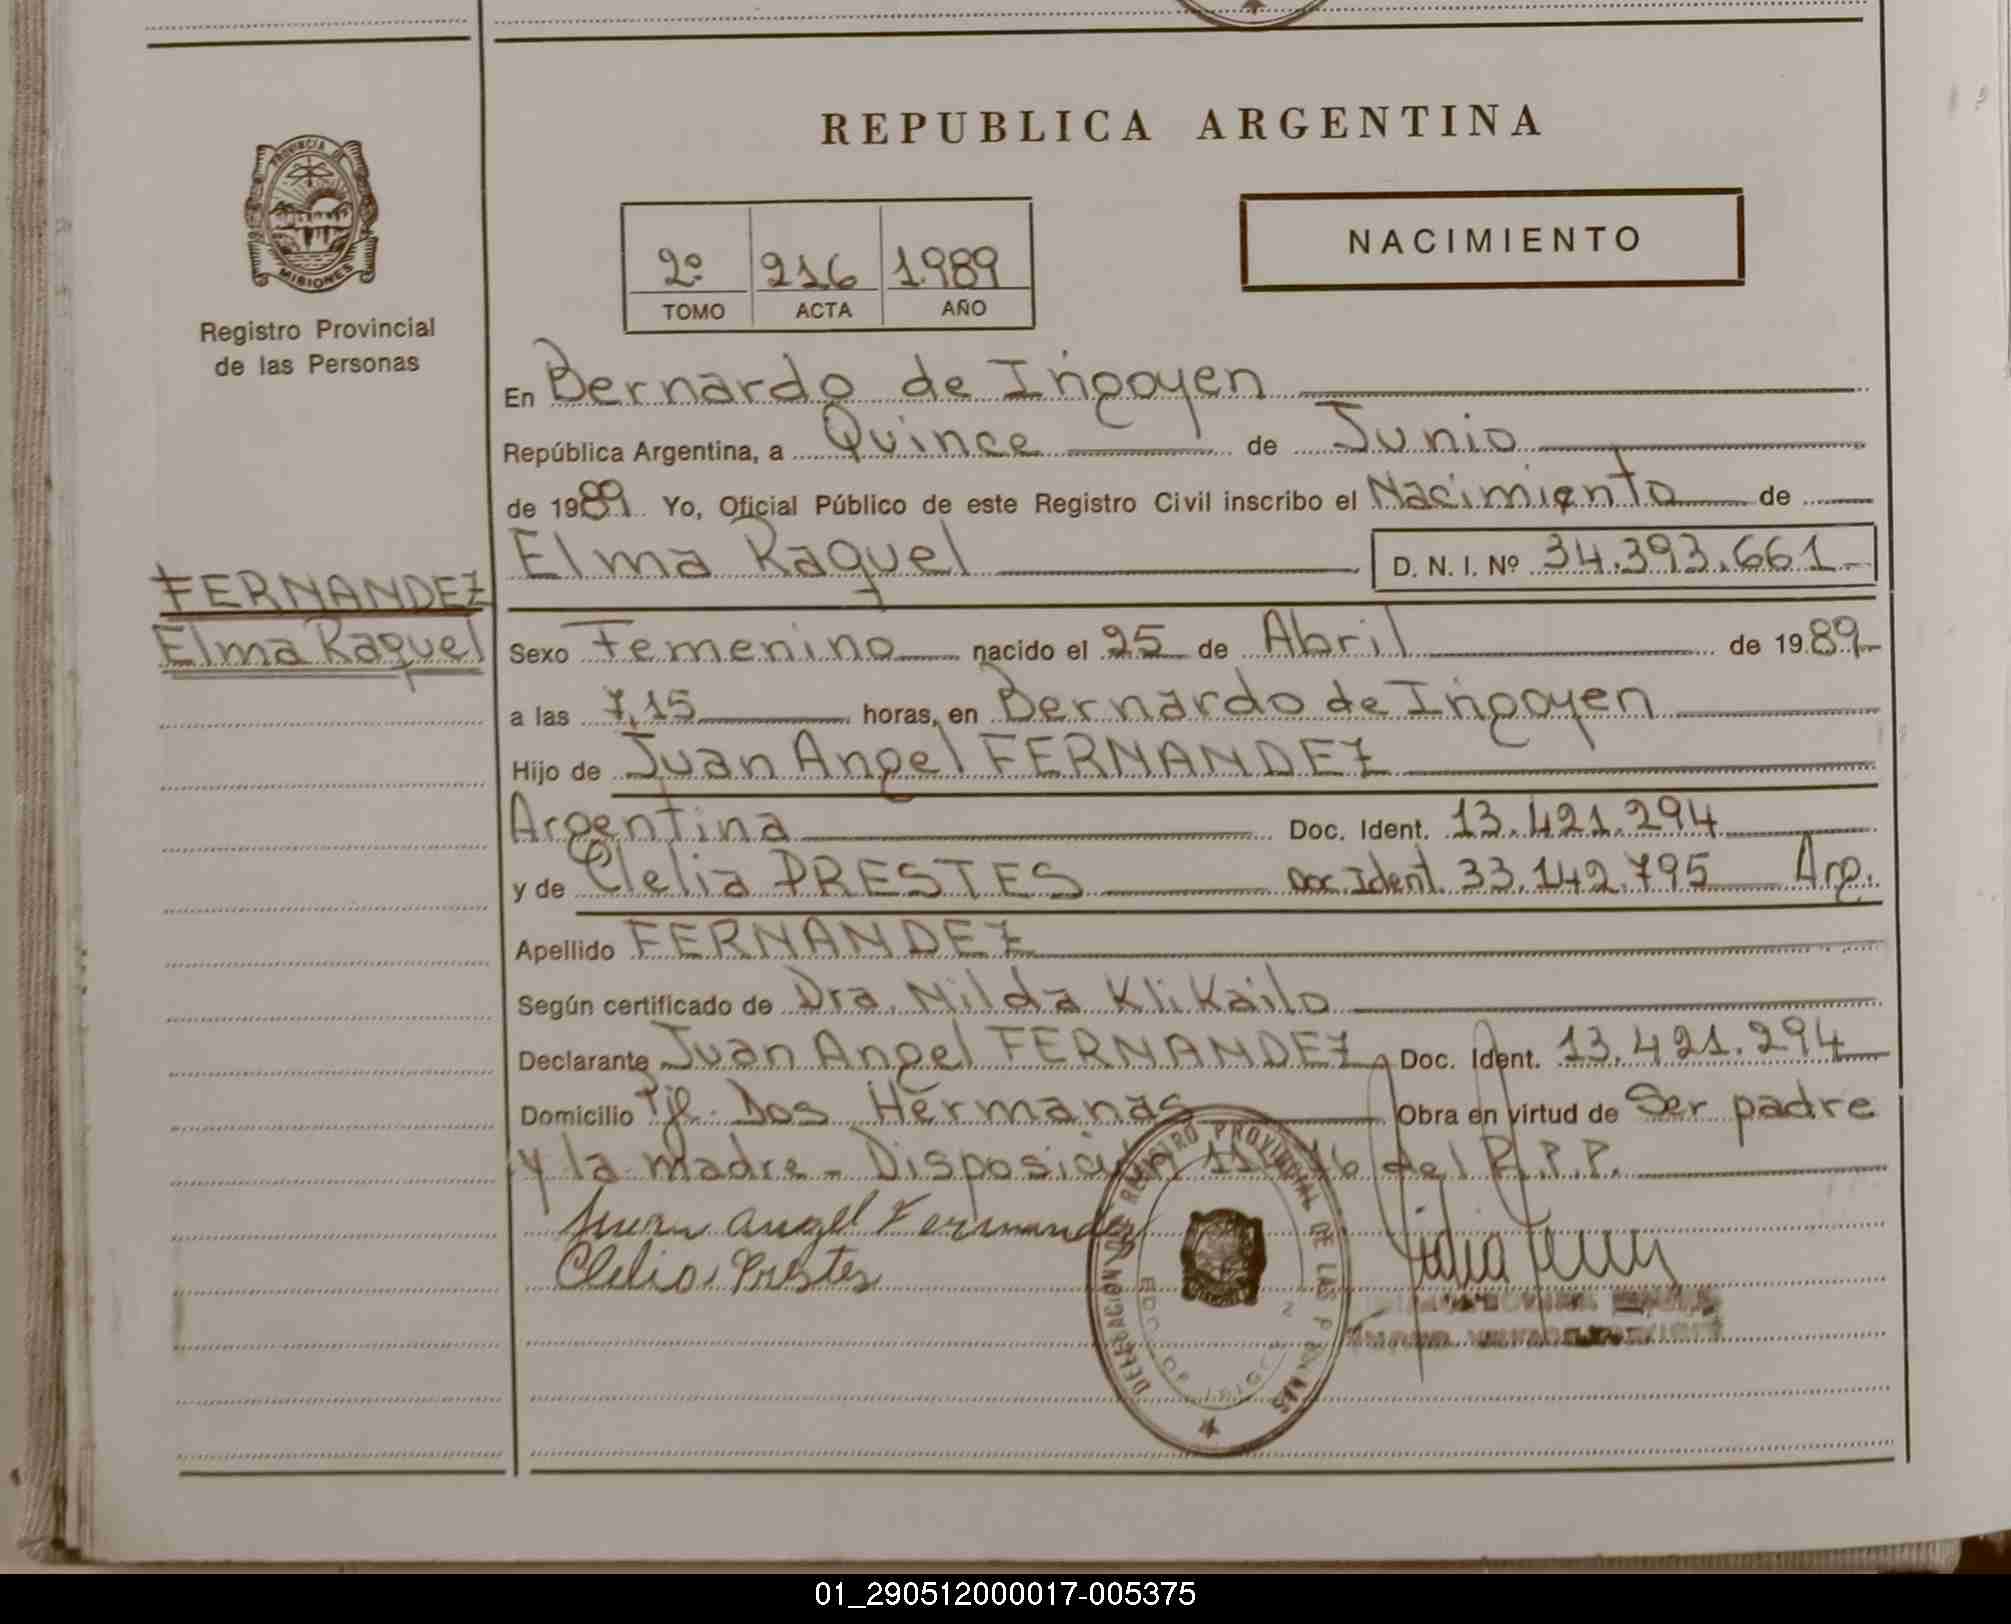 PROVINCIA DE
MISIONES
Registro Provincial
de las Personas
FERNANDEZ
Elma Raquel
REPUBLICA ARGENTINA
2º 216 1.989
TOMO ACTA AÑO
NACIMIENTO
En Bernardo de Irigoyen
República Argentina, a Quince de Junio
de 1989 Yo, Oficial Público de este Registro Civil inscribo el Nacimiento de
Elma Raquel D. N. I. Nº 34.393.661
Sexo Femenino nacido el 25 de Abril de 1989
a las 7,15 horas, en Bernardo de Irigoyen
Hijo de Juan Angel FERNANDEZ
Argentina Doc. Ident. 13.421.294
y de Clelia PRESTES Doc Ident. 33.142.795 Arg.
Apellido FERNANDEZ
Según certificado de Dra. Nilda KliKailo
Declarante Juan Angel FERNANDEZ Doc. Ident. 13.421.294
Domicilio Pje. Dos Hermanas Obra en virtud de Ser padre
y la madre - Disposición del R.P.P.
Juan Angel Fernandez
Clelia Prestes
DELEGACION REGISTRO PROVINCIAL DE LAS PERSONAS
01_290512000017-005375